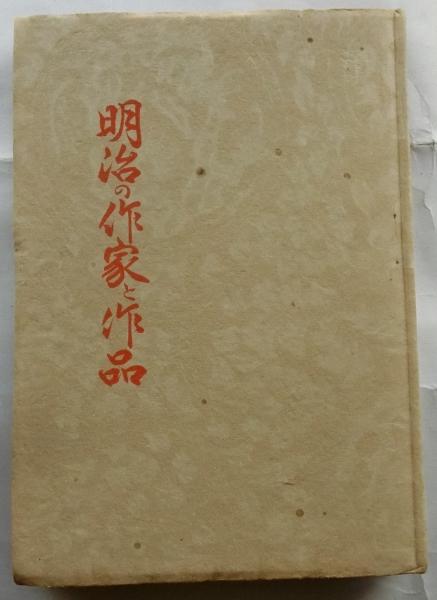 明治の作家と作品